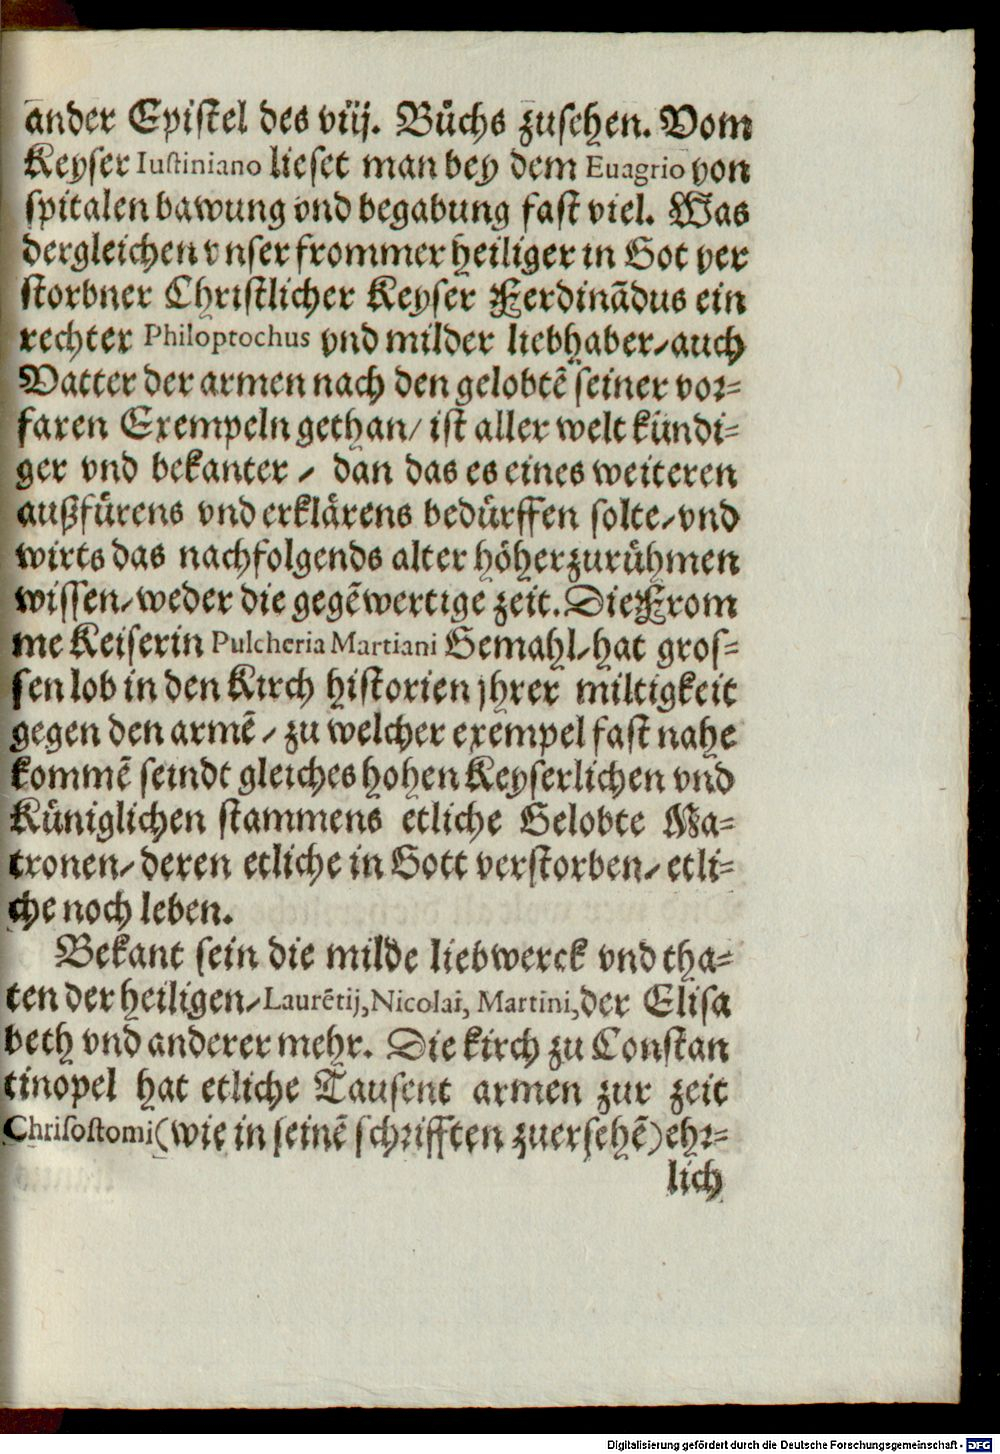 ander Epistel des viij. Bůchs zusehen. Vom
Keyser Iustiniano lieset man bey dem Euagrio von
spitalen bawung vnd begabung fast viel. Was
dergleichen vnser frommer heiliger in Got ver
storbner Christlicher Keyser Ferdinãdus ein
rechter Philoptochus vnd milder liebhaber/ auch
Vatter der armen nach den gelobtẽ seiner vor⸗
faren Exempeln gethan/ ist aller welt kündi⸗
ger vnd bekanter / dan das es eines weiteren
außfürens vnd erklärens bedürffen solte/ vnd
wirts das nachfolgends alter höher zurühmen
wissen/ weder die gegẽwertige zeit. Die From
me Keiserin Pulcheria Martiani Gemahl/ hat gros⸗
sen lob in den Kirch historien jhrer miltigkeit
gegen den armẽ / zu welcher exempel fast nahe
kommẽ seindt gleiches hohen Keyserlichen vnd
Küniglichen stammens etliche Gelobte Ma⸗
tronen/ deren etliche in Gott verstorben/ etli⸗
che noch leben.
Bekant sein die milde liebwerck vnd tha⸗
ten der heiligen/ Laurẽtij, Nicolai, Martini, der Elisa
beth vnd anderer mehr. Die kirch zu Constan
tinopel hat etliche Tausent armen zur zeit
Chrisostomi (wie in seinẽ schrifften zuersehẽ) ehr⸗
lich
Digitalisierung gefördert durch die Deutsche Forschungsgemeinschaft - DFG